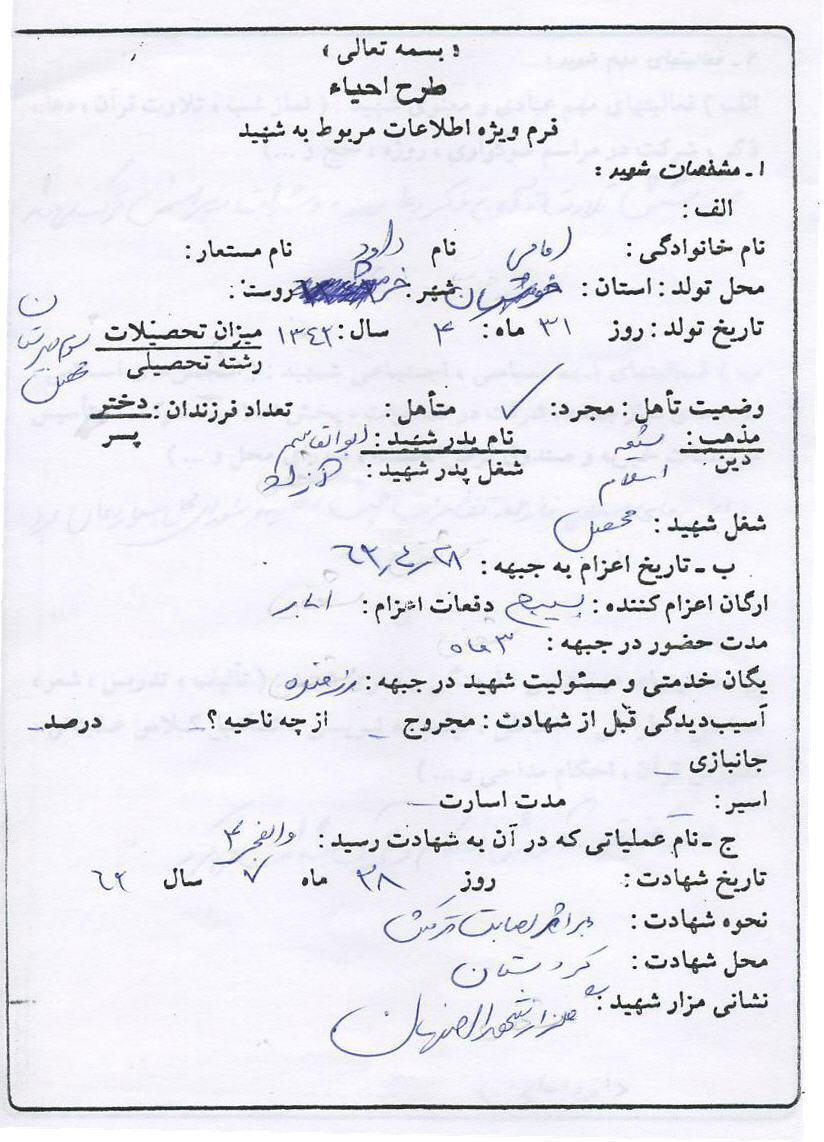 « بسمه تعالی »
طرح احیاء
فرم ویژه اطلاعات مربوط به شهید
۱ـ مشخصات شهید :
الف :
نام خانوادگی : امامی نام داود نام مستعار :
محل تولد : استان : خوزستان شهر : روستا :
تاریخ تولد : روز ۳۱ ماه : ۴ سال : ۱۳۴۲ میزان تحصیلات
رشته تحصیلی
وضعیت تأهل : مجرد : ✓ متأهل : تعداد فرزندان : دختر
پسر
مذهب : شیعه نام پدر شهید : ابوالقاسم
دین اسلام شغل پدر شهید : آزاد
شغل شهید : محصل
ب ـ تاریخ اعزام به جبهه : ۶۲٫۴٫۲۸
ارگان اعزام کننده : بسیج دفعات اعزام : ۱ بار
مدت حضور در جبهه : ۳ ماه
یگان خدمتی و مسئولیت شهید در جبهه : رزمنده
آسیب‌دیدگی قبل از شهادت : مجروح _ از چه ناحیه ؟ _ درصد _
جانبازی _
اسیر : _ مدت اسارت _
ج ـ نام عملیاتی که در آن به شهادت رسید : والفجر ۴
تاریخ شهادت : روز ۲۸ ماه ۷ سال ۶۲
نحوه شهادت : براثر اصابت ترکش
محل شهادت : کردستان
نشانی مزار شهید : گلزار شهدا اصفهان